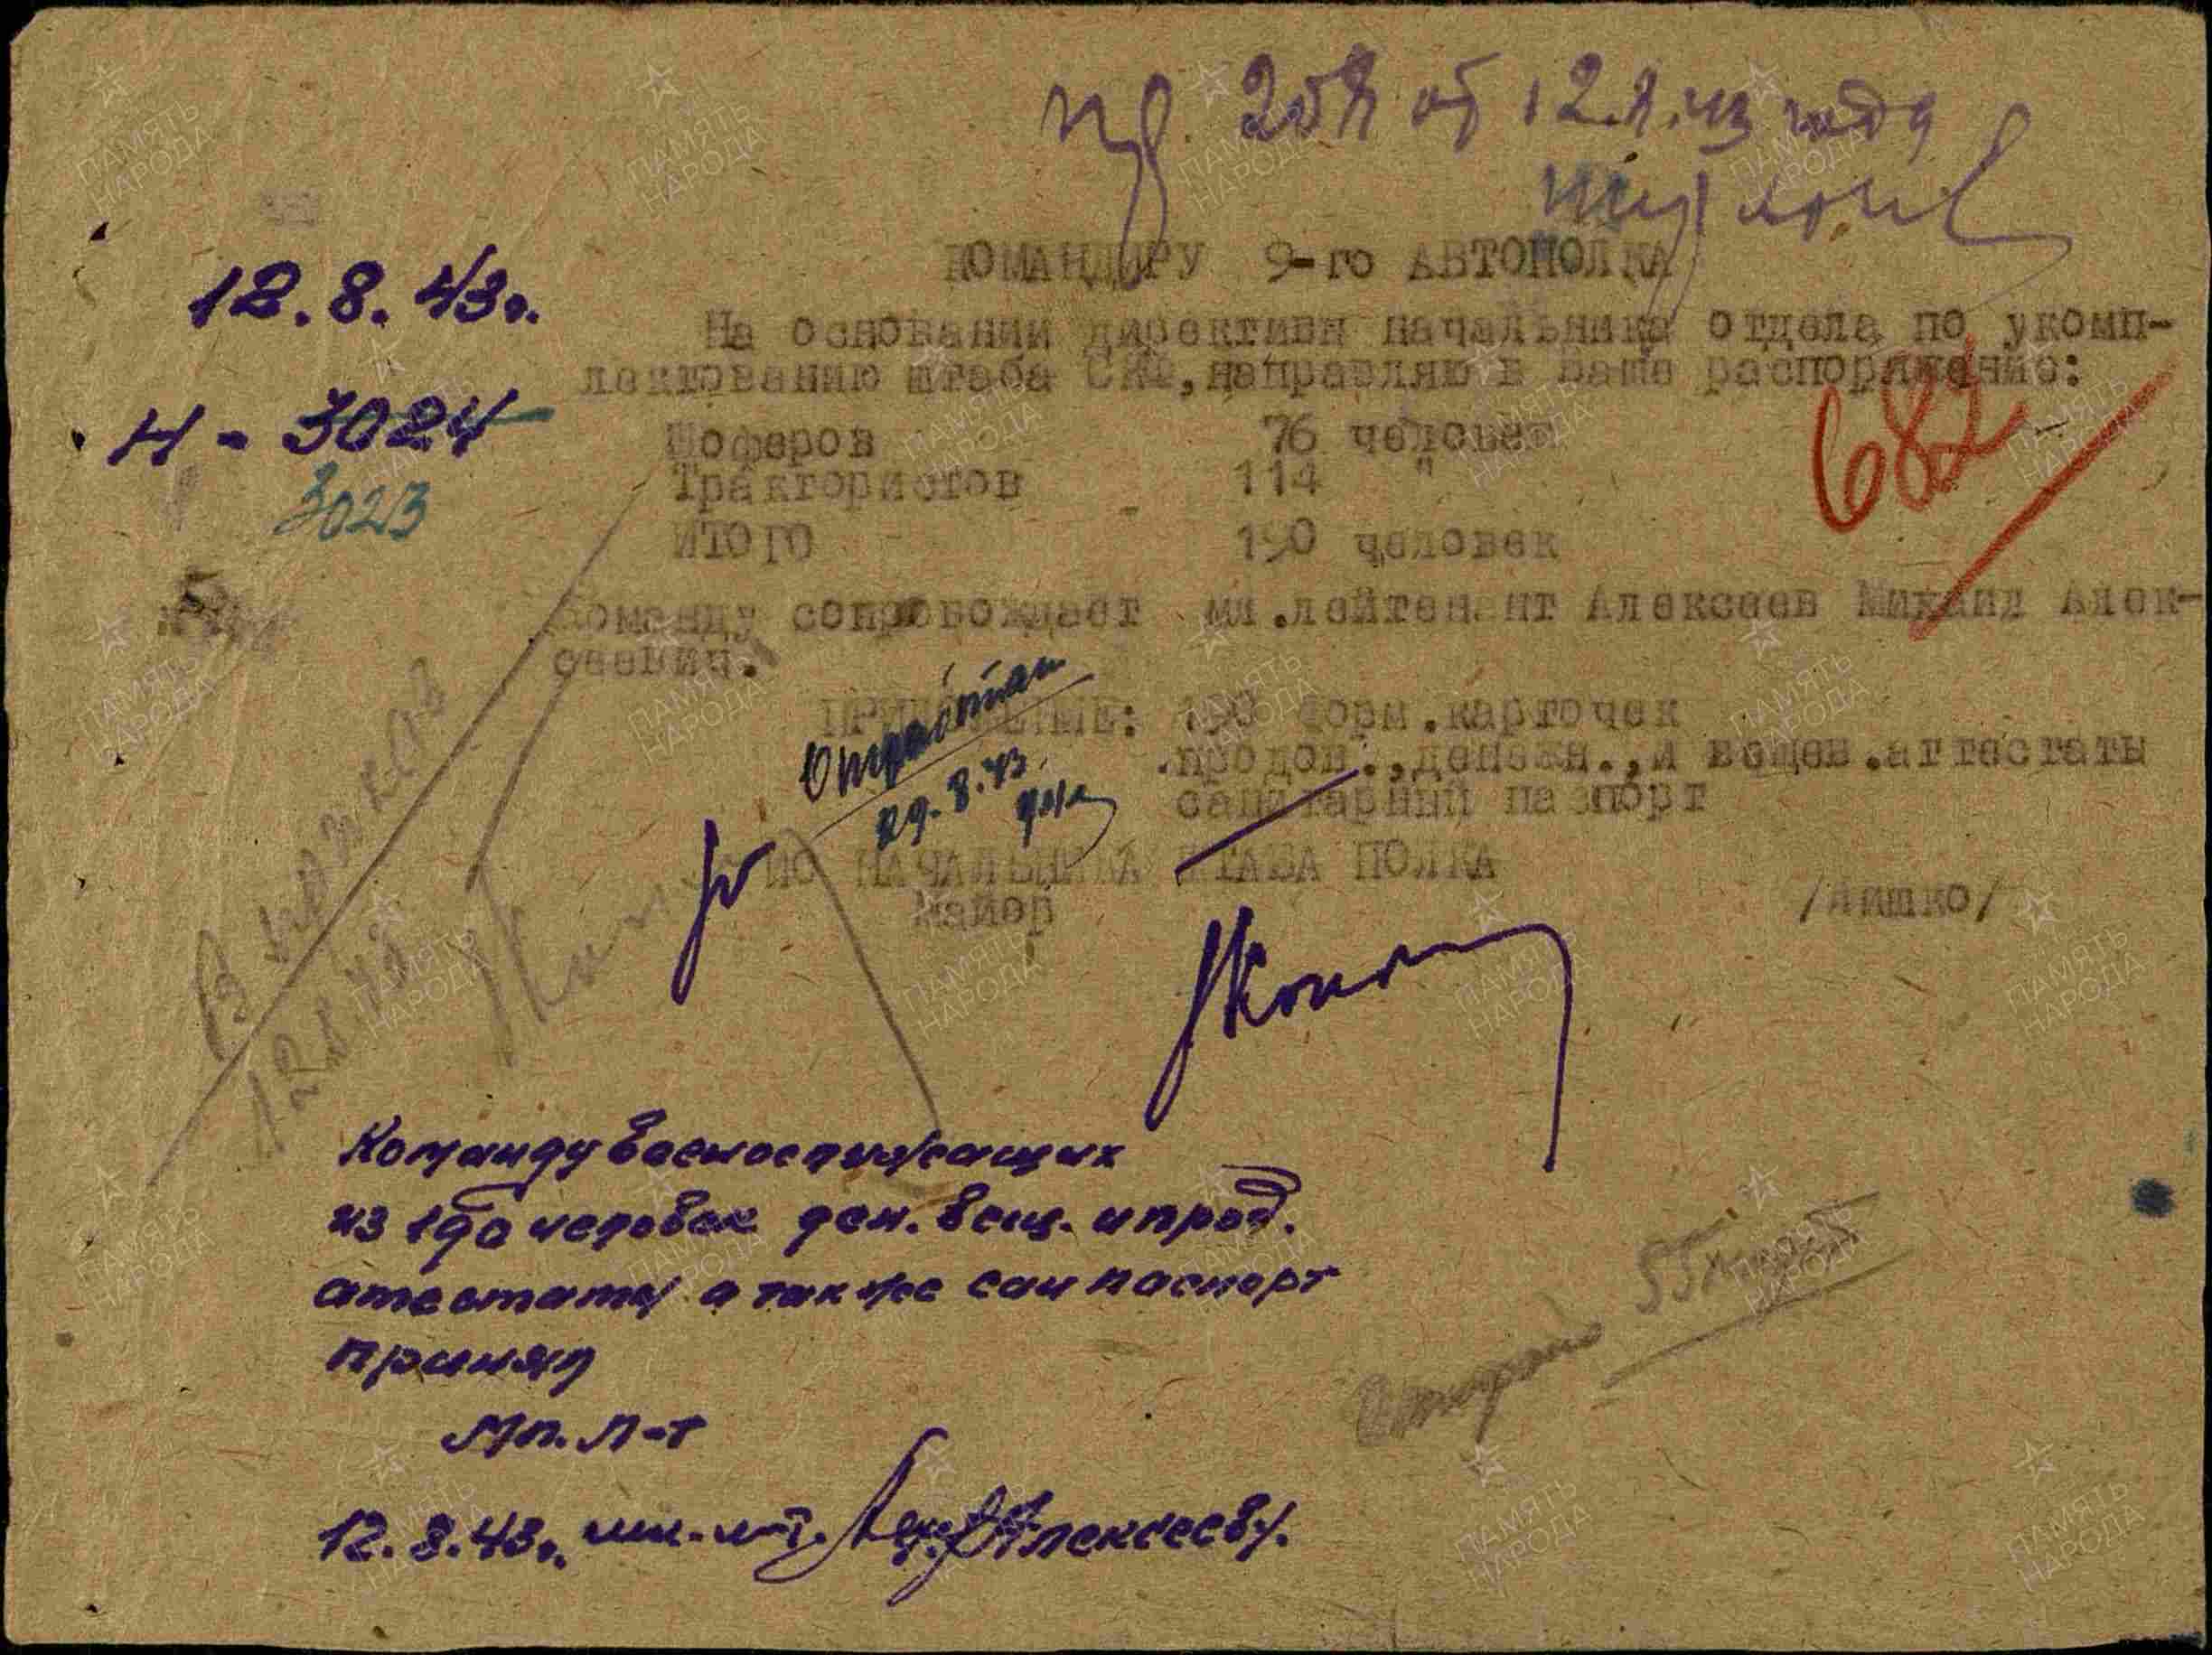 от 12.8.43 года
12.8.43г.
КОМАНДИРУ 9-го АВТОПОЛКА
На основании директивы начальника отдела по укомп-
лектованию штаба СКФ, направляю в Ваше распоряжение:
Н - 3024
3023
682
Шоферов 76 человек
Трактористов 114 "
ИТОГО 190 человек
Команду сопровождает мл.лейтенант Алексеев Михаил Алек-
сеевич.
ПРИЛОЖЕНИЕ: 190 форм.карточек
продов.,денежн.,и вещев.аттестаты
санитарный паспорт
29.8.43.
НАЧАЛЬНИКА ШТАБА ПОЛКА
Майор /Ляшко/
В приказ
12.8.43
Команду военнослужащих
из 190 человек ден. вещ. и прод.
атестаты а также сан паспорт
принял
Мл. Л-т
12.8.43г. мл. л-т. Алексеев/.